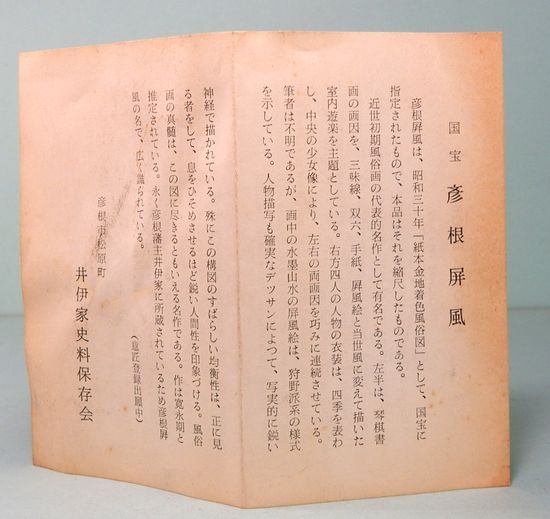 国宝 彦根屏風
彦根屏風は、昭和三十年「紙本金地着色風俗図」として、国宝に
指定されたもので、本品はそれを縮尺したものである。
近世初期風俗画の代表的名作として有名である。左半は、琴棋書
画の画因を、三味線、双六、手紙、屏風絵と当世風に変えて描いた
室内遊楽を主題としている。右方四人の人物の衣装は、四季を表わ
し、中央の少女像により、左右の両画因を巧みに連続させている。
筆者は不明であるが、画中の水墨山水の屏風絵は、狩野派系の様式
を示している。人物描写も確実なデツサンによつて、写実的に鋭い
神経で描かれている。殊にこの構図のすばらしい均衡性は、正に見
る者をして、息をひそめさせるほど鋭い人間性を印象づける。風俗
画の真髄は、この図に尽きるともいえる名作である。作は寛永期と
推定されている。永く彦根藩主井伊家に所蔵されているため彦根屏
風の名で、広く識られている。
(意匠登録出願中)
彦根市松原町
井伊家史料保存会